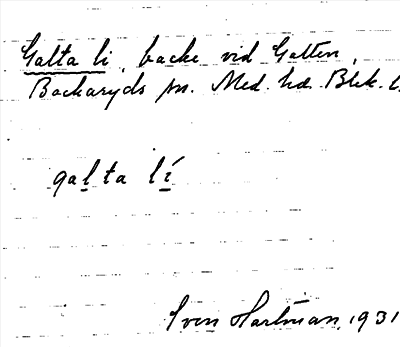 Galta li, backe vid Galten,
Backaryds sn. Med. hd. Blek. l.
galta lí
Sven Hartman, 1931